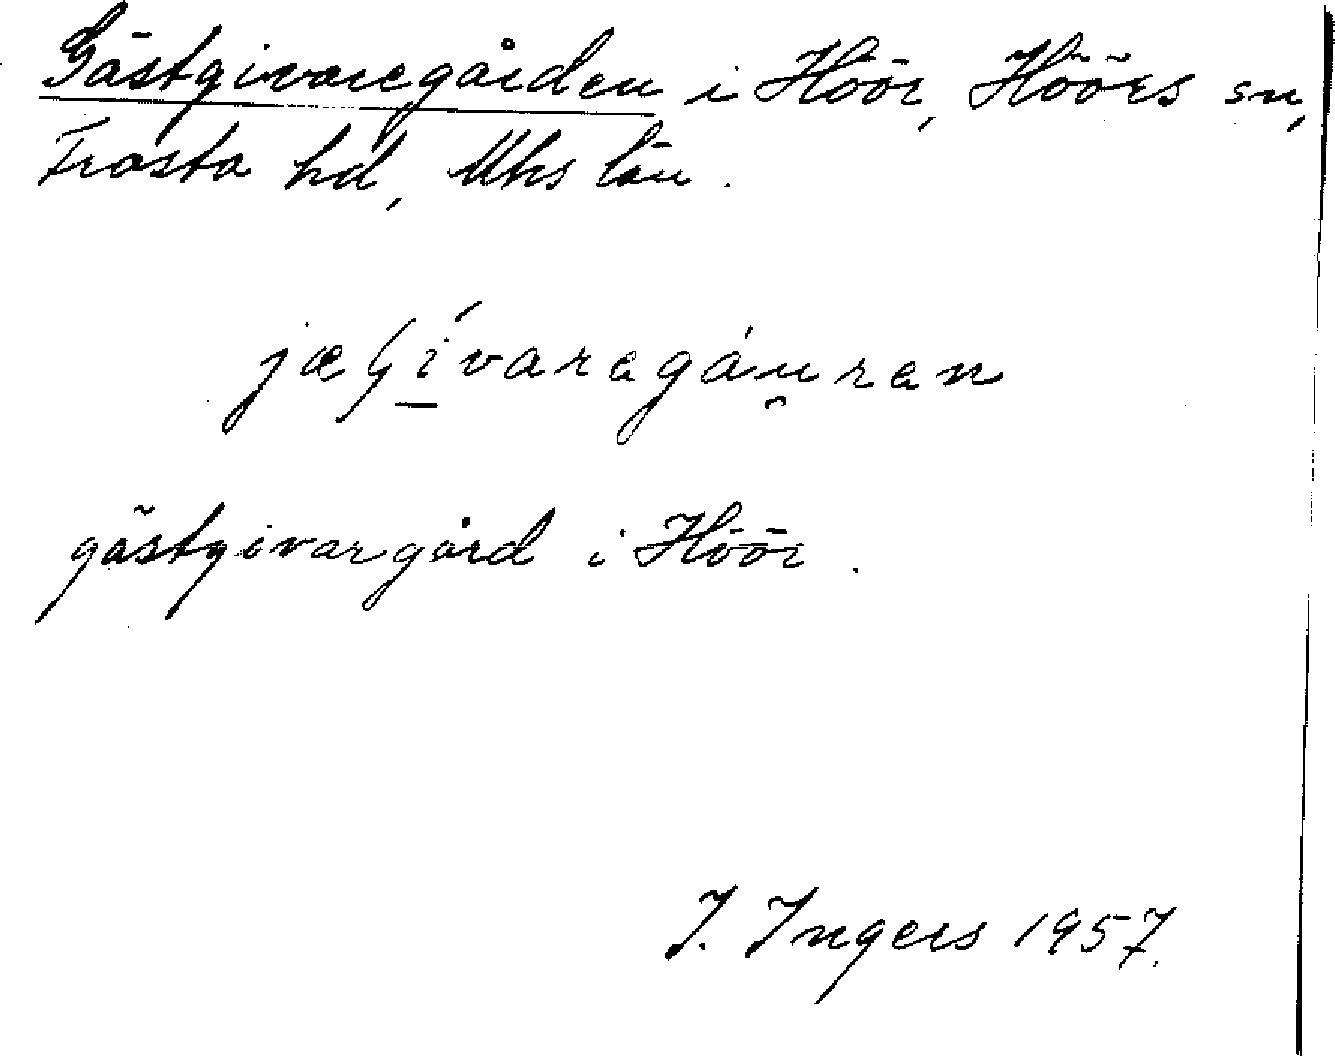 Gästgivaregården i Höör, Höörs sn,
Frosta hd, Mhs län.
jæʃívaregáu̯ren
gästgivargård i Höör.
I. Ingers 1957.